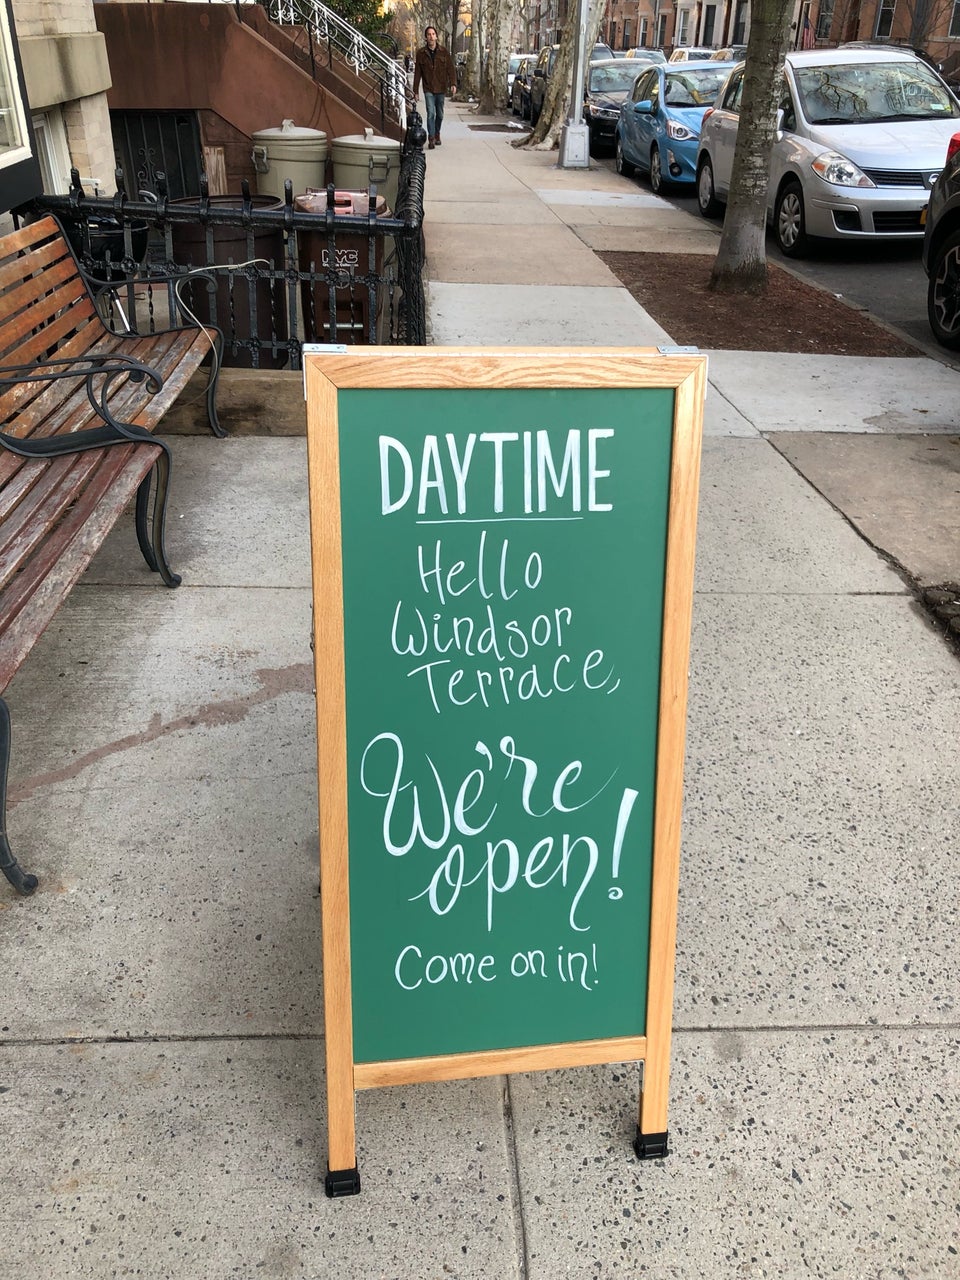 NYC
DAYTIME
Hello
Windsor
Terrace,
We're
open!
Come on in!